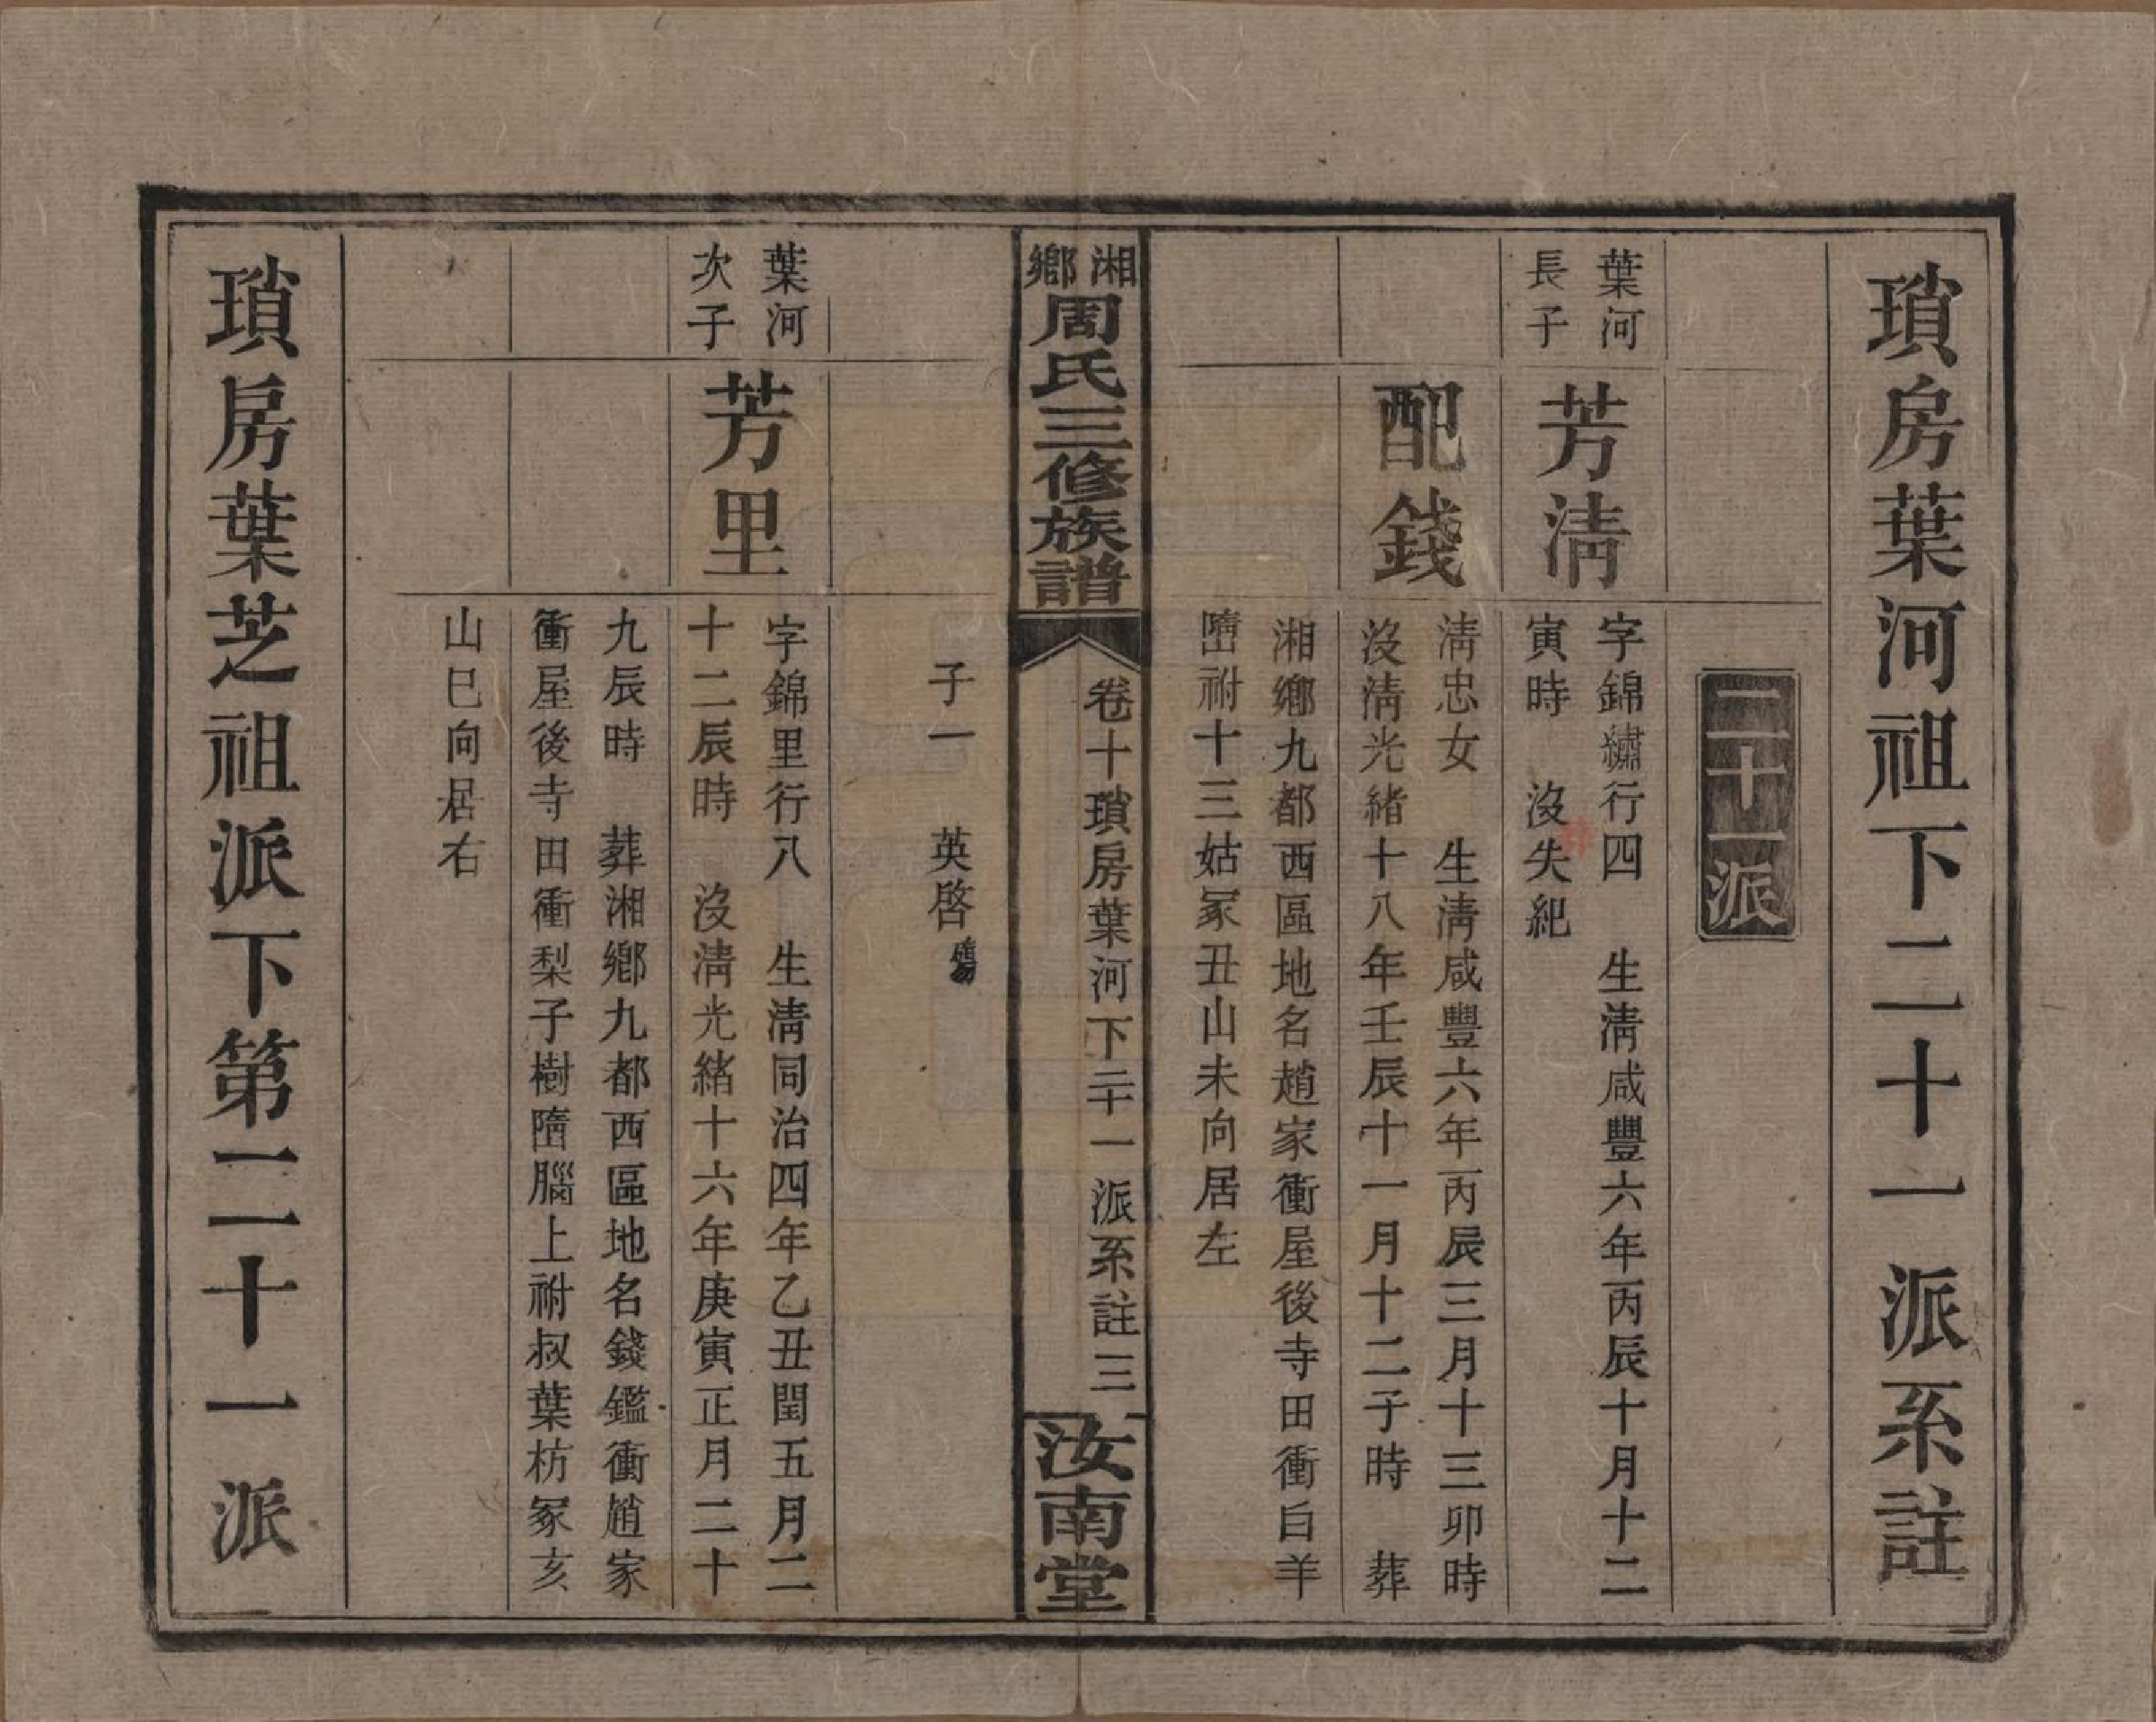 瑣房葉河祖下二十一派系註
二十一派
葉河
長子
芳淸
字錦繡行四　生淸咸豐六年丙辰十月十二
寅時　沒失紀
配錢
淸忠女　生淸咸豐六年丙辰三月十三卯時
沒淸光緒十八年壬辰十一月十二子時　葬
湘鄕九都西區地名趙家衝屋後寺田衝白羊
墮祔十三姑冢丑山未向居左
湘鄕周氏三修族譜
卷十瑣房葉河下二十一派系註 三
汝南堂
子一　英啓
葉河
次子
芳里
字錦里行八　生淸同治四年乙丑閏五月二
十二辰時　沒淸光緒十六年庚寅正月二十
九辰時　葬湘鄕九都西區地名錢鑑衝趙家
衝屋後寺田衝梨子樹墮腦上祔叔葉枋冢亥
山巳向居右
瑣房葉芝祖派下第二十一派